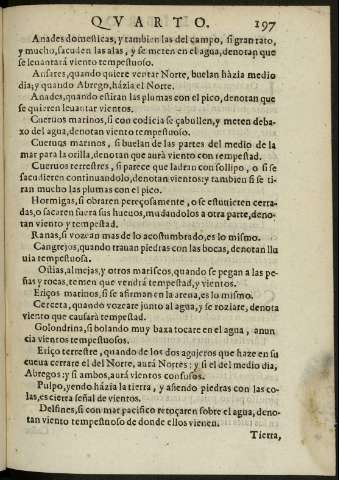 QVARTO. 197
Anades domesticas, y tambien las del campo, si gran rato,
y mucho, sacuden las alas, y se meten en el agua, denotan que
se leuantará viento tempestuoso.
Ansares, quando quiere ventar Norte, buelan hàzia medio
dia; y quando Abrego, házia el Norte.
Anades, quando estiran las plumas con el pico, denotan que
se quieren leuantar vientos.
Cueruos marinos, si con codicia se çabullen, y meten deba-
xo del agua, denotan viento tempestuoso.
Cueruos marinos, si buelan de las partes del medio de la
mar para la orilla, denotan que aurà viento con tempestad.
Cueruos terrestres, si parece que ladran con sollipo, o si se
sacudieren continuandolo, denotan vientos: y tambien si se ti-
ran mucho las plumas con el pico.
Hormigas, si obraren pereçosamente, o se estuuieren cerra-
das, o sacaren fuera sus hueuos, mudandolos a otra parte, deno-
tan viento y tempestad.
Ranas, si vozean mas de lo acostumbrado, es lo mismo.
Cangrejos, quando trauan piedras con las bocas, denotan llu
uia tempestuosa.
Ostias, almejas, y otros mariscos, quando se pegan a las pe-
ñas y rocas, temen que vendrá tempestad, y vientos.
Eriços marinos, si se afirman en la arena, es lo mismo.
Cerceta, quando vozeare junto al agua, y se roziare, denota
viento que causarà tempestad.
Golondrina, si bolando muy baxa tocare en el agua, anun
cia vientos tempestuosos.
Eriço terrestre, quando de los dos agujeros que haze en su
cueua cerrare el del Norte, aurá Nortes: y si el del medio dia,
Abregos: y si ambos, aurá vientos confusos.
Pulpo, yendo házia la tierra, y asiendo piedras con las co-
las, es cierta señal de vientos.
Delfines, si con mar pacifico retoçaren sobre el agua, deno-
tan viento tempestuoso de donde ellos vienen.
Tierra,